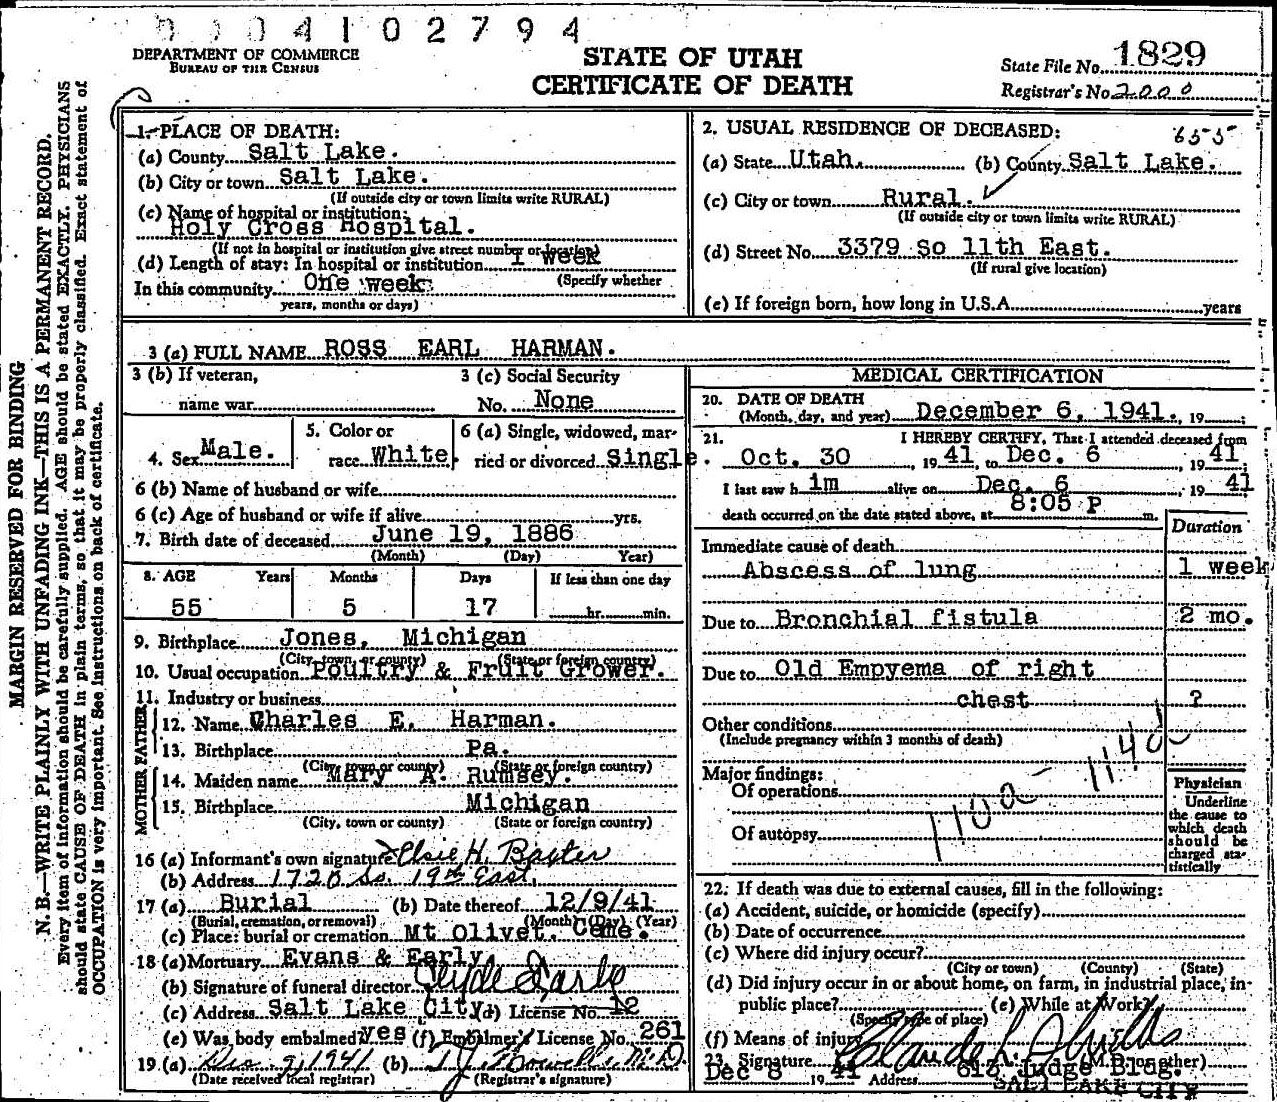 0 0 0 4 1 0 2 7 9 4
DEPARTMENT OF COMMERCE
BUREAU OF THE CENSUS
STATE OF UTAH
CERTIFICATE OF DEATH
State File No. 1829
Registrar's No. 2000
MARGIN RESERVED FOR BINDING
N. B.—WRITE PLAINLY WITH UNFADING INK—THIS IS A PERMANENT RECORD.
Every item of information should be carefully supplied. AGE should be stated EXACTLY. PHYSICIANS
should state CAUSE OF DEATH in plain terms, so that it may be properly classified. Exact statement of
OCCUPATION is very important. See instructions on back of certificate.
1. PLACE OF DEATH:
(a) County Salt Lake.
(b) City or town Salt Lake.
(If outside city or town limits write RURAL)
(c) Name of hospital or institution:
Holy Cross Hospital.
(If not in hospital or institution give street number or location)
(d) Length of stay: In hospital or institution 1 week
(Specify whether
In this community One week
years, months or days)
2. USUAL RESIDENCE OF DECEASED: 655
(a) State Utah. (b) County Salt Lake.
(c) City or town Rural.
(If outside city or town limits write RURAL)
(d) Street No. 3379 So 11th East.
(If rural give location)
(e) If foreign born, how long in U.S.A. years
3 (a) FULL NAME ROSS EARL HARMAN.
3 (b) If veteran,
name war
3 (c) Social Security
No. None
4. Sex Male.
5. Color or
race White
6 (a) Single, widowed, mar-
ried or divorced Single.
6 (b) Name of husband or wife
6 (c) Age of husband or wife if alive yrs.
7. Birth date of deceased June 19, 1886
(Month) (Day) Year)
8. AGE Years Months Days If less than one day
55 5 17 hr. min.
9. Birthplace Jones, Michigan
(City, town, or county) (State or foreign country)
10. Usual occupation Poultry & Fruit Grower.
11. Industry or business
FATHER
12. Name Charles E. Harman.
13. Birthplace Pa.
(City, town or county) (State or foreign country)
MOTHER
14. Maiden name Mary A. Rumsey.
15. Birthplace Michigan
(City, town or county) (State or foreign country)
16 (a) Informant's own signature Elsie H. Baxter
(b) Address 1720 So. 19th East.
17 (a) Burial (b) Date thereof 12/9/41
(Burial, cremation, or removal) (Month) (Day) (Year)
(c) Place: burial or cremation Mt Olivet. Ceme.
18 (a) Mortuary Evans & Early
(b) Signature of funeral director Clyde Early
(c) Address Salt Lake City (d) License No. 12
(e) Was body embalmed yes (f) Embalmer's License No. 261
19 (a) Dec. 9, 1941 (b) M.D.
(Date received local registrar) (Registrar's signature)
MEDICAL CERTIFICATION
20. DATE OF DEATH
(Month, day, and year) December 6, 1941. 19
21. I HEREBY CERTIFY, That I attended deceased from
Oct. 30, 1941, to Dec. 6, 1941;
I last saw him alive on Dec. 6, 1941
death occurred on the date stated above, at 8:05 P m.
Duration
Immediate cause of death
Abscess of lung 1 week
Due to Bronchial fistula 2 mo.
Due to Old Empyema of right
chest ?
Other conditions
(Include pregnancy within 3 months of death)
Major findings:
Of operations
Of autopsy
Physician
Underline
the cause to
which death
should be
charged sta-
tistically
22. If death was due to external causes, fill in the following:
(a) Accident, suicide, or homicide (specify)
(b) Date of occurrence
(c) Where did injury occur?
(City or town) (County) (State)
(d) Did injury occur in or about home, on farm, in industrial place, in-
public place? (e) While at Work?
(Specify type of place)
(f) Means of injury
23. Signature Claude L. Shields (M.D. or other)
Dec 8 1941 Address 613 Judge Bldg.
SALT LAKE CITY